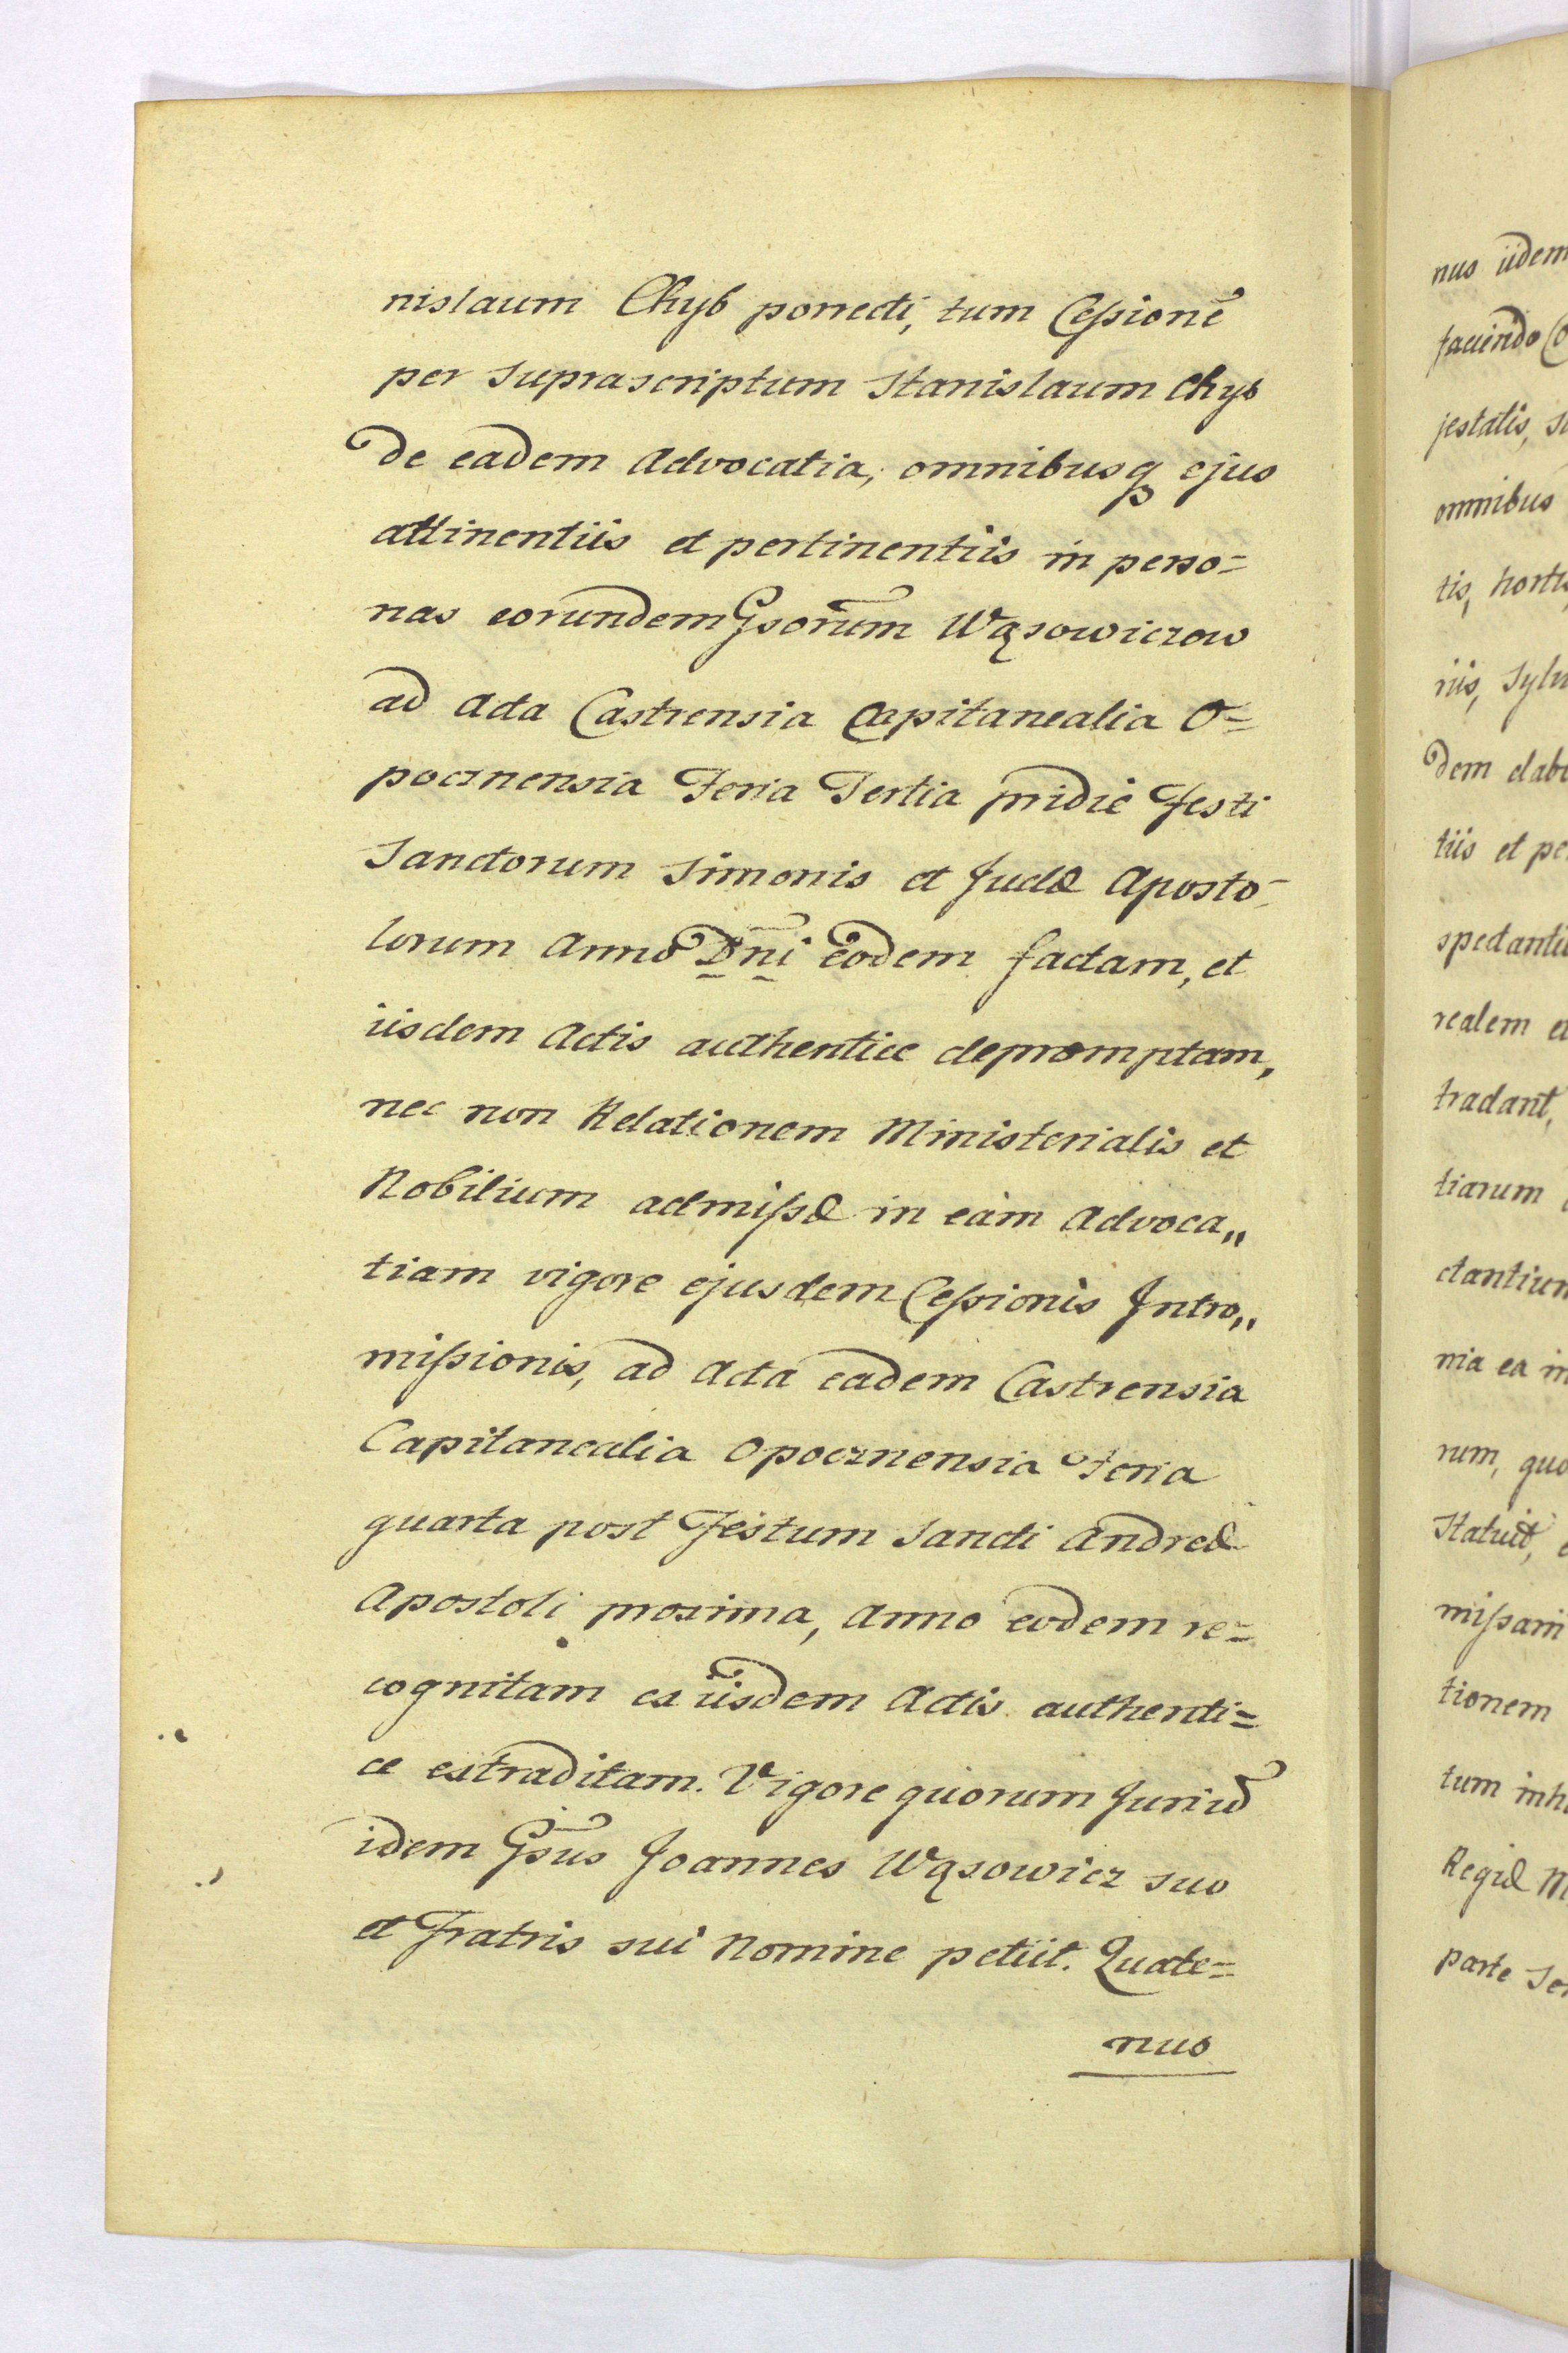 nislaum Chyb porrecti, tum Cessionē
per Suprascriptum Stanislaum Chyb
de eadem Advocatia, omnibusq ejus
attinentiis et pertinentiis in perso=
nas eorundem Gsorum Wąsowiczow
ad Acta Castrensia Capitanealia O=
pocznensia Feria Tertia pridie Festi
Sanctorum Simonis et Judæ Aposto=
lorum Anno Dni eodem factam, et
iisdem Actis authentice depromptam,
nec non Relationem Ministerialis et
Nobilium admissæ in eam Advoca„
tiam vigore ejusdem Cessionis Intro„
missionis, ad Acta eadem Castrensia
Capitanealia Opocznensia Feria
quarta post Festum Sancti Andreæ
Apostoli proxima, Anno eodem re=
cognitam ex iisdem Actis authenti=
ce extraditam. Vigore quorum Juriū
idem Gsus Joannes Wąsowicz suo
et Fratris sui Nomine petiit. Quate=
nus
nus iidem
faciendo
jestatis,
omnibus
tis, hortis
riis,
dem
tiis et
spectantiu
realem
tradant,
tiarum
ctantium
nia ea in
rum, quo
Statuit,
missarii
tionem
tum inh
Regiæ M
parte